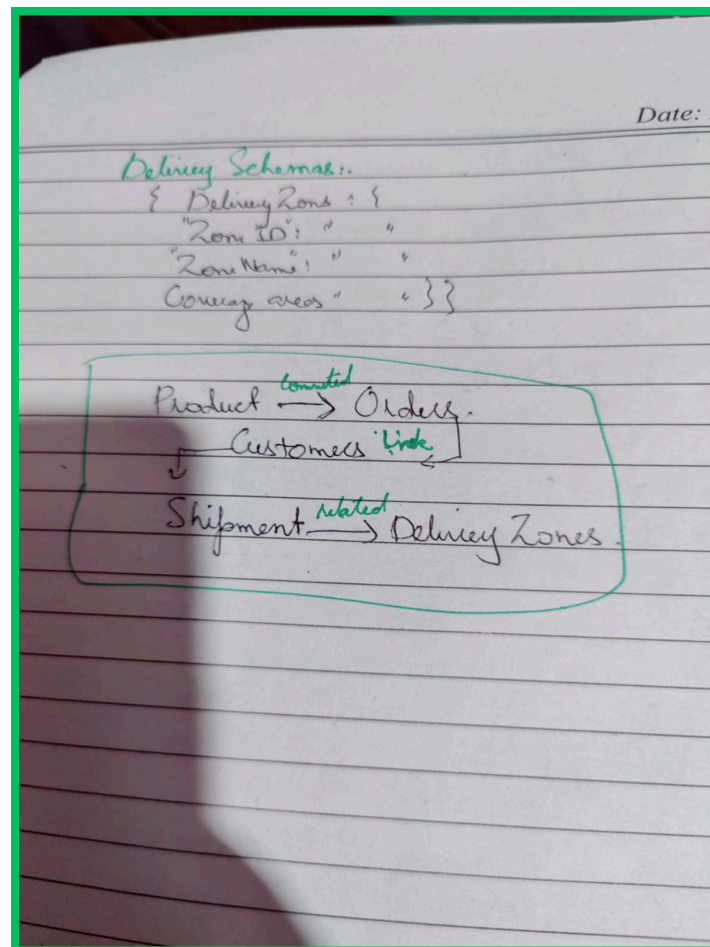 Date:
Delivery Schemas:.
{ Delivery Zons : {
"Zone ID": " "
"Zone Name": " "
Coverag areas " " }}
Product connected → Orders.
Customers Link
Shipment related → Delivery Zones.